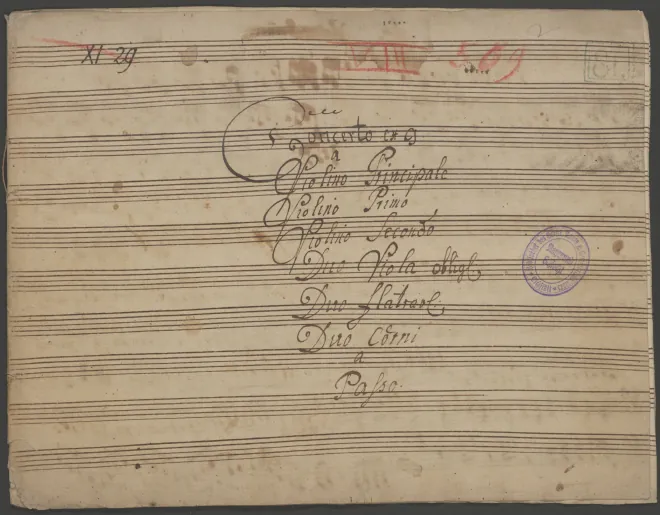 XI 29
VIII 569
Concerto ex G
a
Violino Principale
Violino Primo
Violino Secondo
Duo Viola obligt
Duo
Duo Corni
a
Passo.